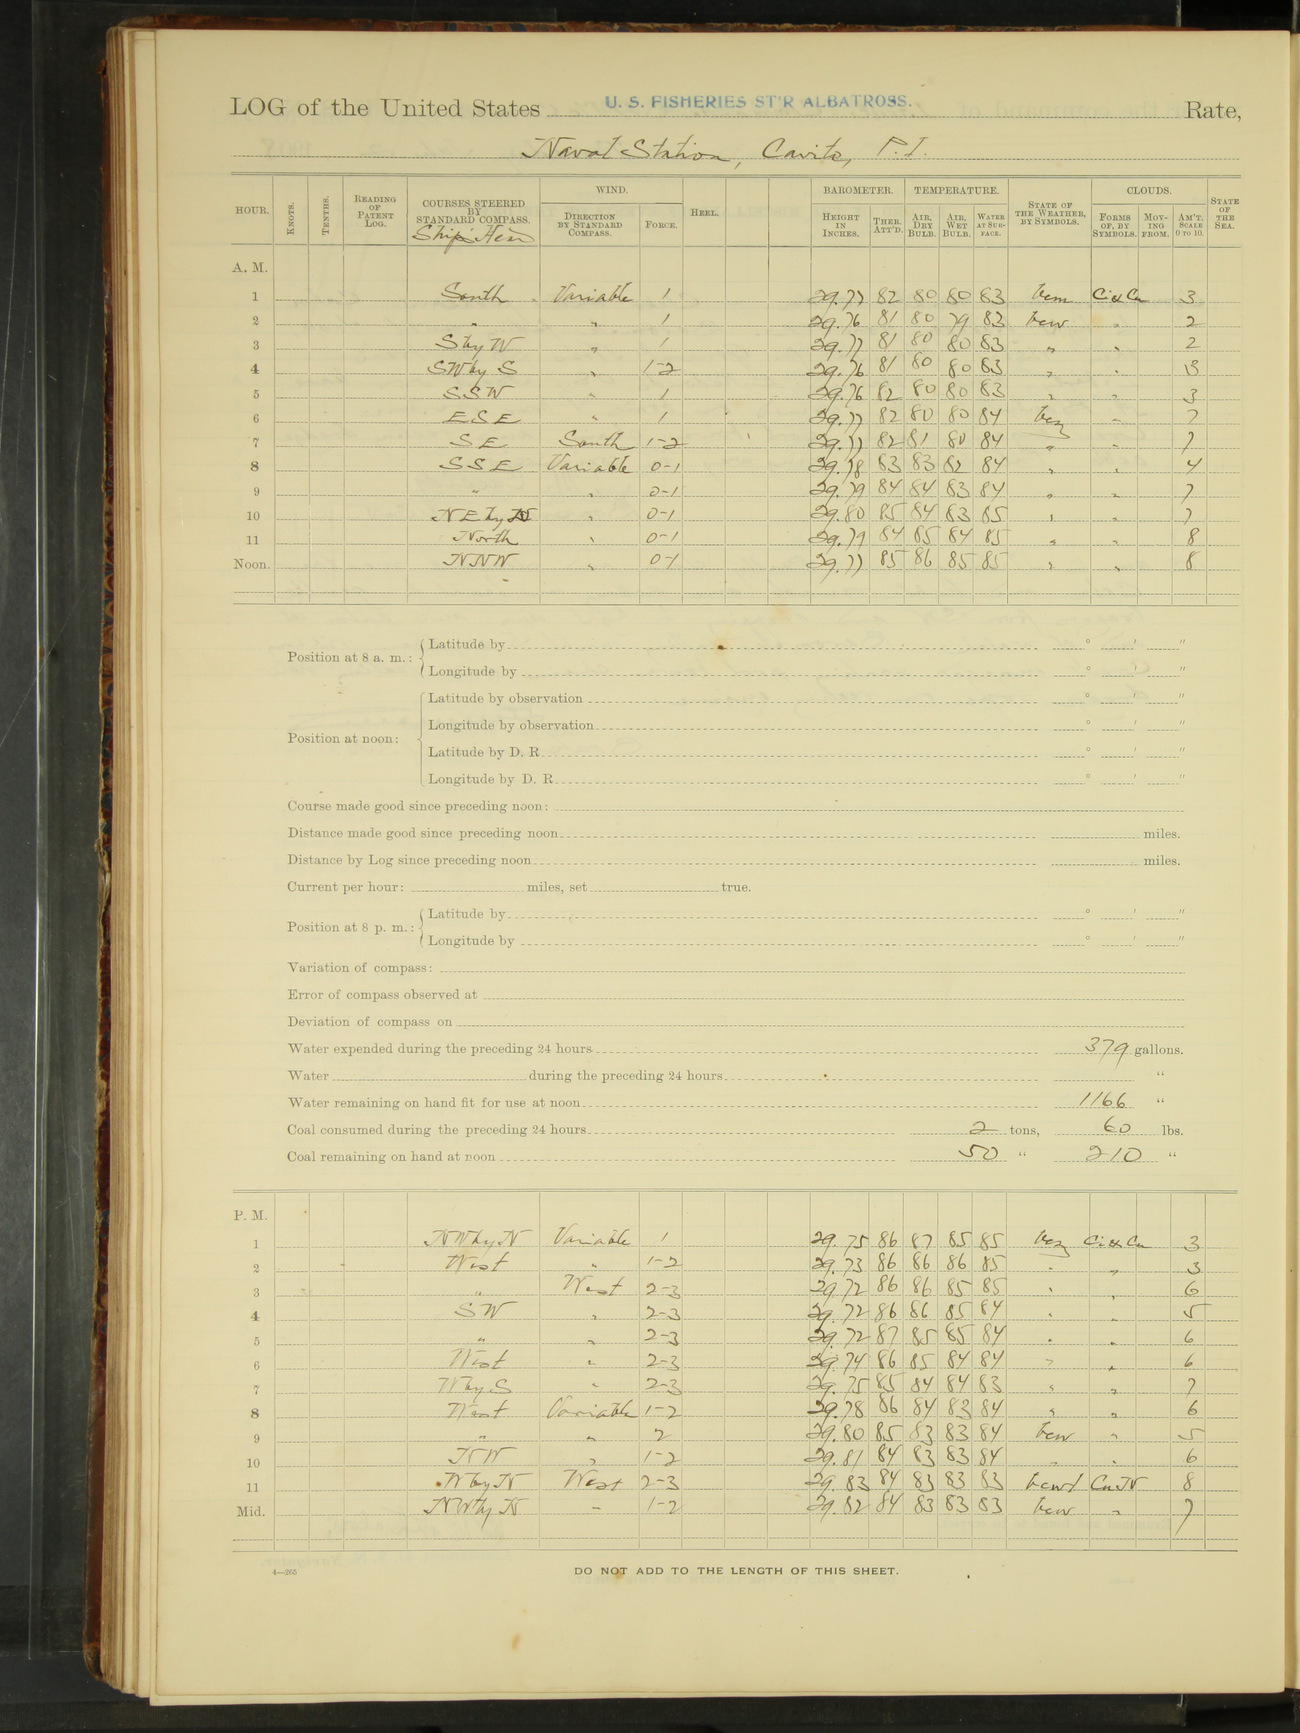 LOG of the United States U. S. FISHERIES ST'R ALBATROSS. Rate,
Naval Station, Cavite, P. I.
HOUR. KNOTS. TENTHS. READING OF PATENT LOG. COURSES STEERED BY STANDARD COMPASS. WIND. DIRECTION BY STANDARD COMPASS. FORCE. HEEL. BAROMETER. HEIGHT IN INCHES. THER. ATT'D. TEMPERATURE. AIR, DRY BULB. AIR, WET BULB. WATER AT SURFACE. STATE OF THE WEATHER, BY SYMBOLS. CLOUDS. FORMS OF, BY SYMBOLS. MOVING FROM. AM'T. SCALE 0 TO 10. STATE OF THE SEA.
A. M.
1 South Variable 1 29.77 82 80 80 83 Ci & Cu 3
2 " " 1 29.76 81 80 79 83 bcw " 2
3 S by W " 1 29.77 81 80 80 83 " " 2
4 SW by S " 1-2 29.76 81 80 80 83 " " 3
5 SSW " 1 29.76 82 80 80 83 " " 3
6 ESE " 1 29.77 82 80 80 84 bcz " 7
7 SE South 1-2 29.77 82 81 80 84 " " 7
8 SSE Variable 0-1 29.78 83 83 82 84 " " 4
9 " " 0-1 29.79 84 84 83 84 " " 7
10 NE by N " 0-1 29.80 85 84 83 85 " " 7
11 North " 0-1 29.79 84 85 84 85 " " 8
Noon. NNW " 0-1 29.77 85 86 85 85 " " 8
Position at 8 a. m.: Latitude by ° ' "
Longitude by ° ' "
Position at noon: Latitude by observation ° ' "
Longitude by observation ° ' "
Latitude by D. R. ° ' "
Longitude by D. R. ° ' "
Course made good since preceding noon:
Distance made good since preceding noon miles.
Distance by Log since preceding noon miles.
Current per hour: miles, set true.
Position at 8 p. m.: Latitude by ° ' "
Longitude by ° ' "
Variation of compass:
Error of compass observed at
Deviation of compass on
Water expended during the preceding 24 hours 379 gallons.
Water during the preceding 24 hours "
Water remaining on hand fit for use at noon 1166 "
Coal consumed during the preceding 24 hours 2 tons, 60 lbs.
Coal remaining on hand at noon 50 " 210 "
P. M.
1 NW by N Variable 1 29.75 86 87 85 85 bcz Ci & Cu 3
2 West " 1-2 29.73 86 86 86 85 " " 3
3 " West 2-3 29.72 86 86 85 85 " " 6
4 SW " 2-3 29.72 86 86 85 84 " " 5
5 " " 2-3 29.72 87 85 85 84 " " 6
6 West " 2-3 29.74 86 85 84 84 " " 6
7 W by S " 2-3 29.75 85 84 84 83 " " 7
8 West Variable 1-2 29.78 86 84 83 84 " " 6
9 " " 2 29.80 85 83 83 84 bcw " 5
10 NW " 1-2 29.81 84 83 83 84 " " 6
11 W by N West 2-3 29.83 84 83 83 83 Cu N 8
Mid. NW by N " 1-2 29.82 84 83 83 83 bcw " 7
4—265
DO NOT ADD TO THE LENGTH OF THIS SHEET.